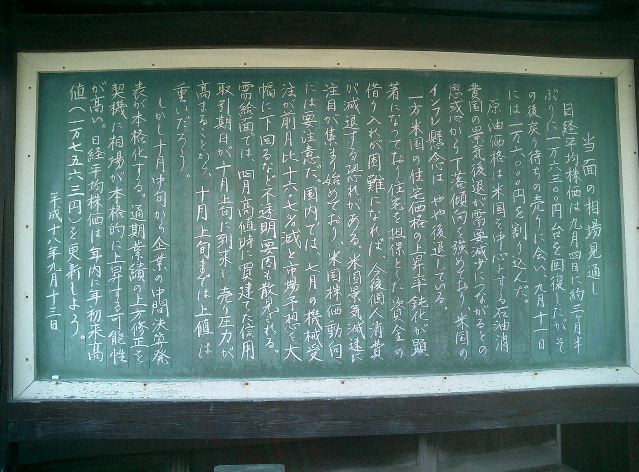 当面の相場見通し
日経平均株価は九月四日に約三月半
ぶりに一万六三〇〇円台を回復したがそ
の後戻り待ちの売りに会い、九月十一日
には一万六〇〇〇円を割り込んだ。
原油価格は米国を中心とする石油消
費国の景気後退が需要減少につながるとの
思惑から下落傾向を強めており米国の
インフレ懸念は やや後退している。
一方米国の住宅価格の上昇率鈍化が顕
著になっており住宅を担保とした資金の
借り入れが困難になれば、今後個人消費
が減退する恐れがある。米国景気減速に
注目が集まり始めており、米国株価動向
には要注意だ。国内では、七月の機械受
注が前月比十六・七%減と市場予想を大
幅に下回るなど不透明要因も散見される。
需給面では、四月高値時に買建てた信用
取引期日が十月上旬に到来し売り圧力が
高まることから、十月上旬までは上値は
重いだろう。
しかし十月中旬から企業の中間決算発
表が本格化する。通期業績の上方修正を
契機に相場が本格的に上昇する可能性
が高い。日経平均株価は年内に年初来高
値(一万七五六三円)を更新しよう。
平成十八年九月十三日